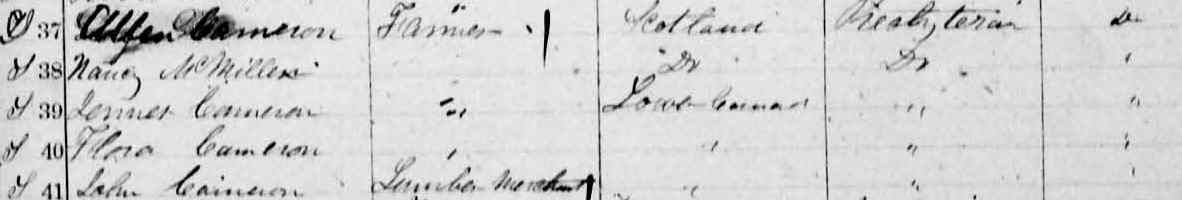 37 Cameron Farmer Scotland Presbyterian Do
38 Nancy McMillen Do Do "
39 Cameron " Lower Canada " "
40 Flora Cameron " " " "
41 John Cameron Lumber Merchant " " "